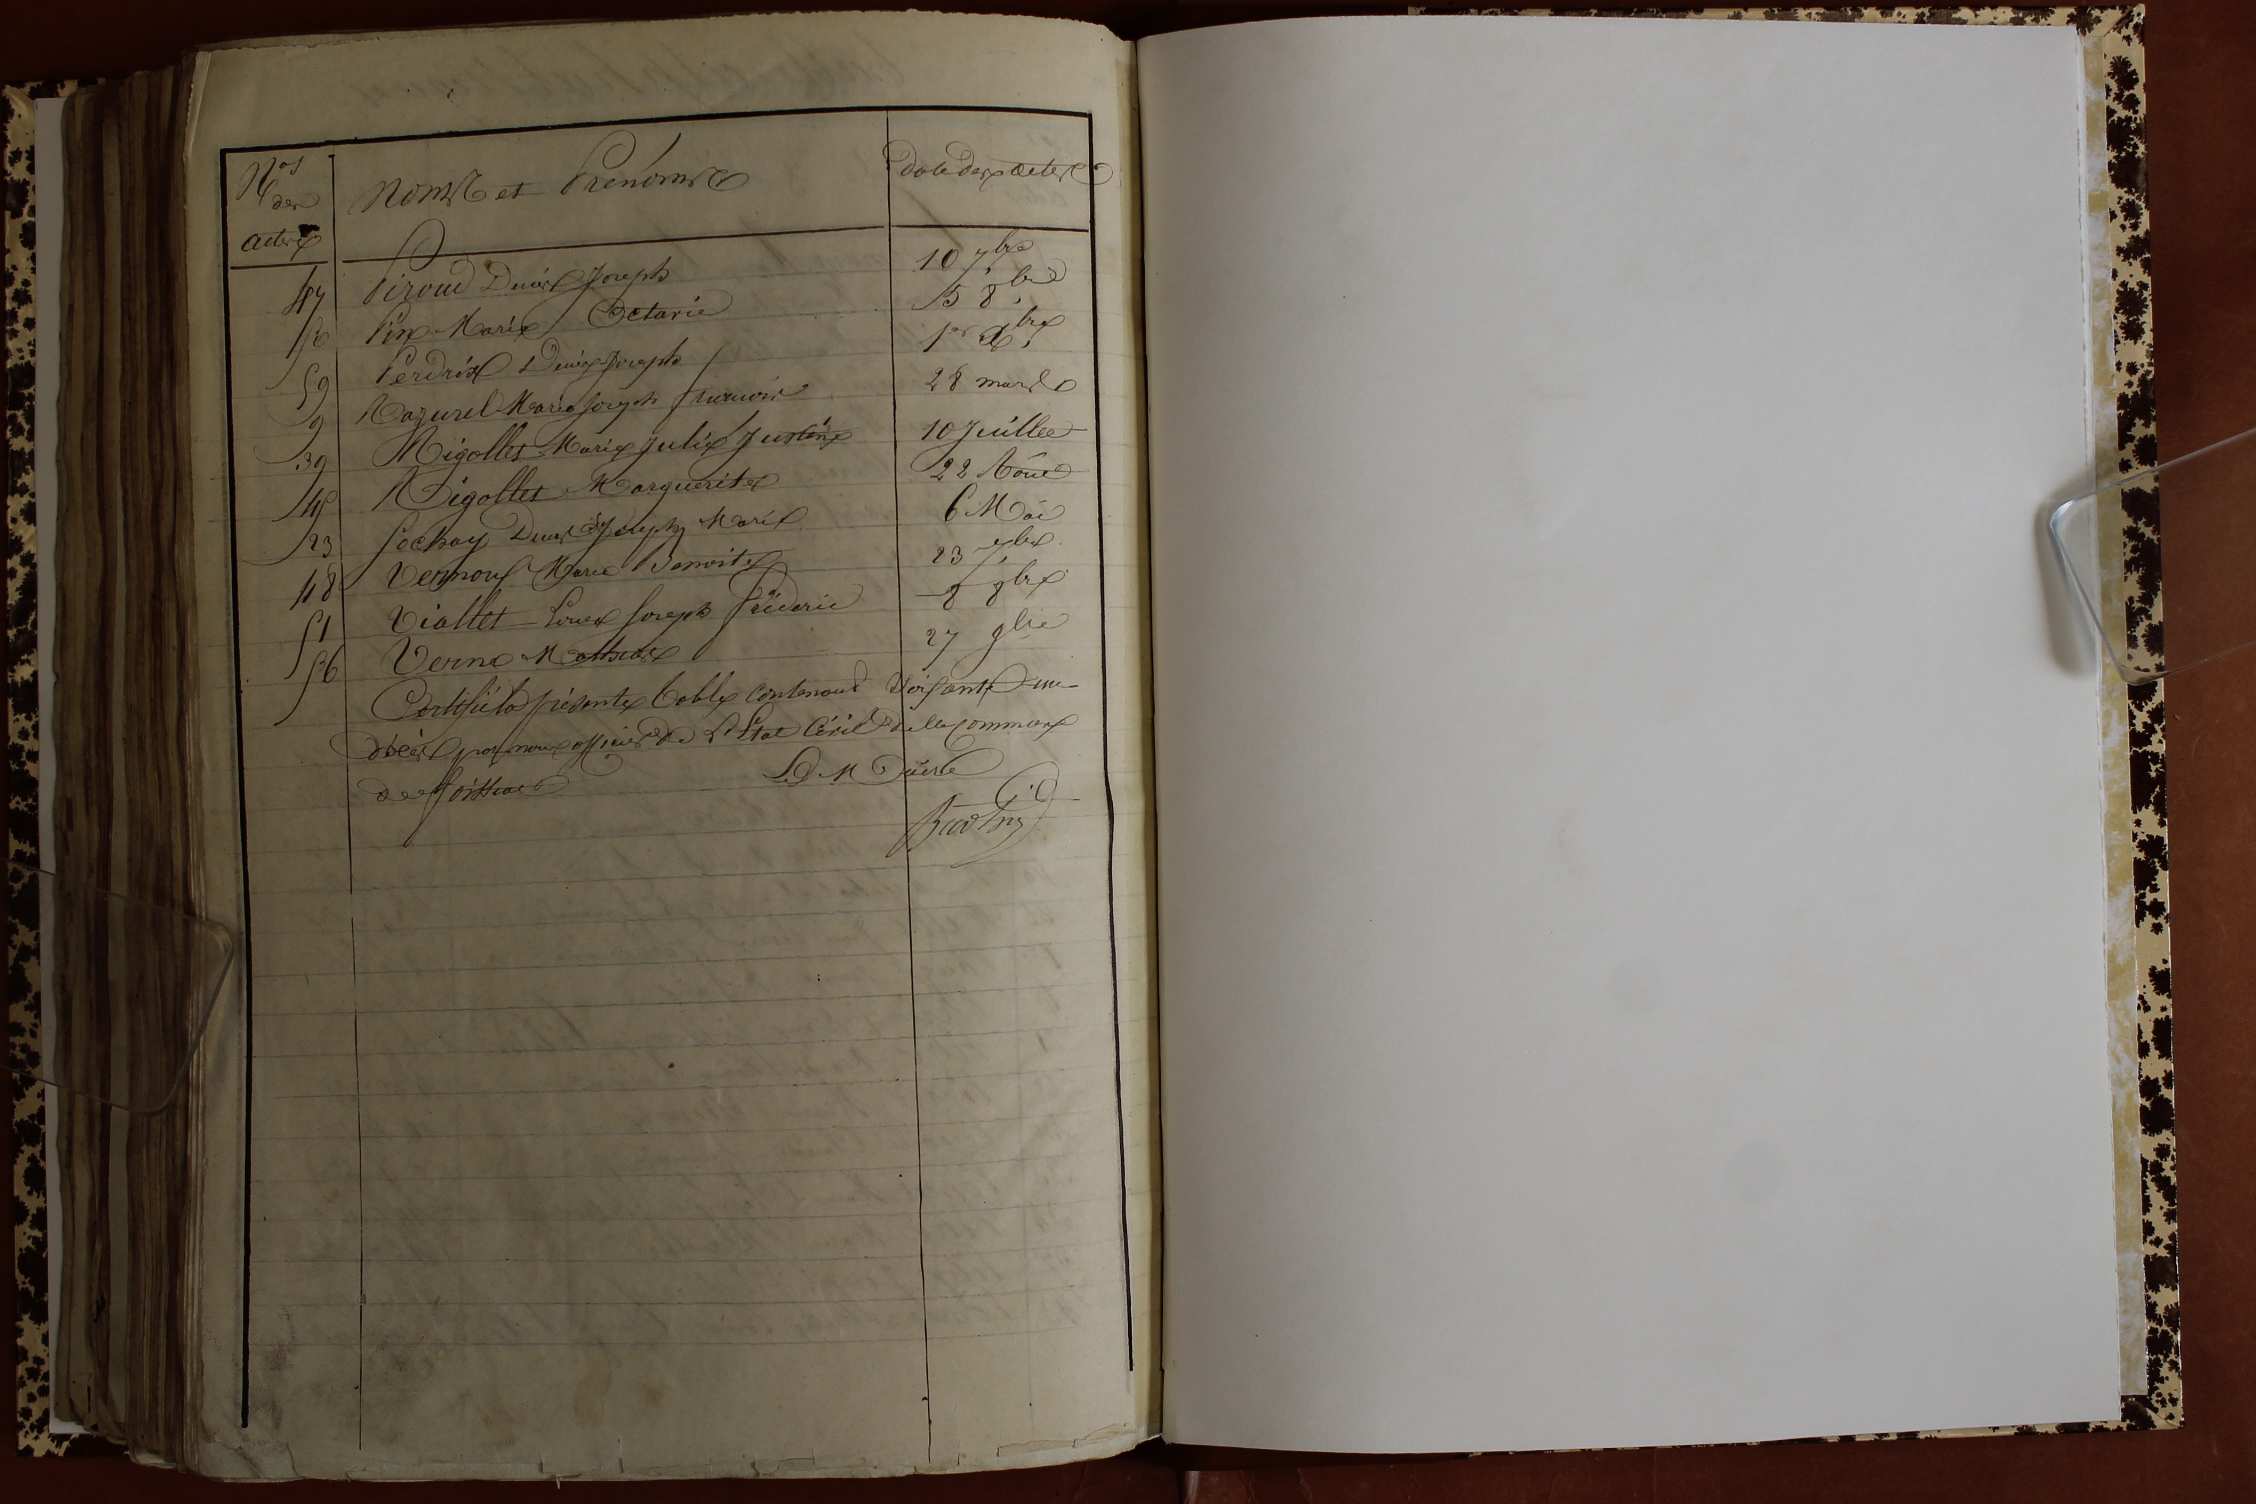 Nos des actes Noms et Prénoms date des actes
47 Piroud Denis Joseph 10 7bre
50 Pin Marie Octavie 15 8bre
59 Perdrix Denis Joseph 1er Xbre
9 Mazurel Marie Joseph 28 mars
39 Rigollet Marie Julie Justine 10 Juillet
45 Rigollet Marguerite 22 Aôut
23 Sochay Denis Joseph Marie 6 Mai
48 Vernoux Marie Benoite 23 7bre
51 Viallet Louis Joseph Fréderic 8 8bre
56 Verne Mathias 27 9bre
Certifié la présente table contenant soixante un
décès par nous officier de l'Etat Civil de la commune
de
Le Maire